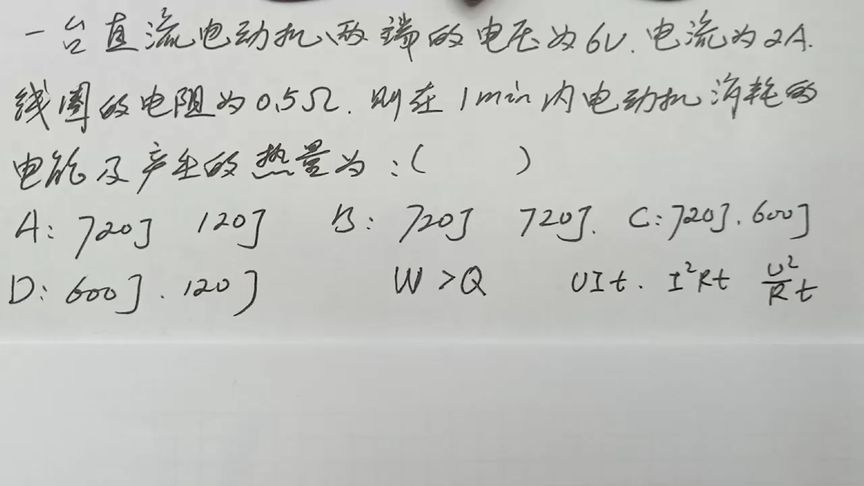 一台直流电动机、两端的电压为6V.电流为2A.
线圈的电阻为0.5Ω.则在1min内电动机消耗的
电能及产生的热量为:( )
A: 720J 120J B: 720J 720J. C: 720J. 600J
D: 600J. 120J W>Q UIt. I²Rt U²/R t